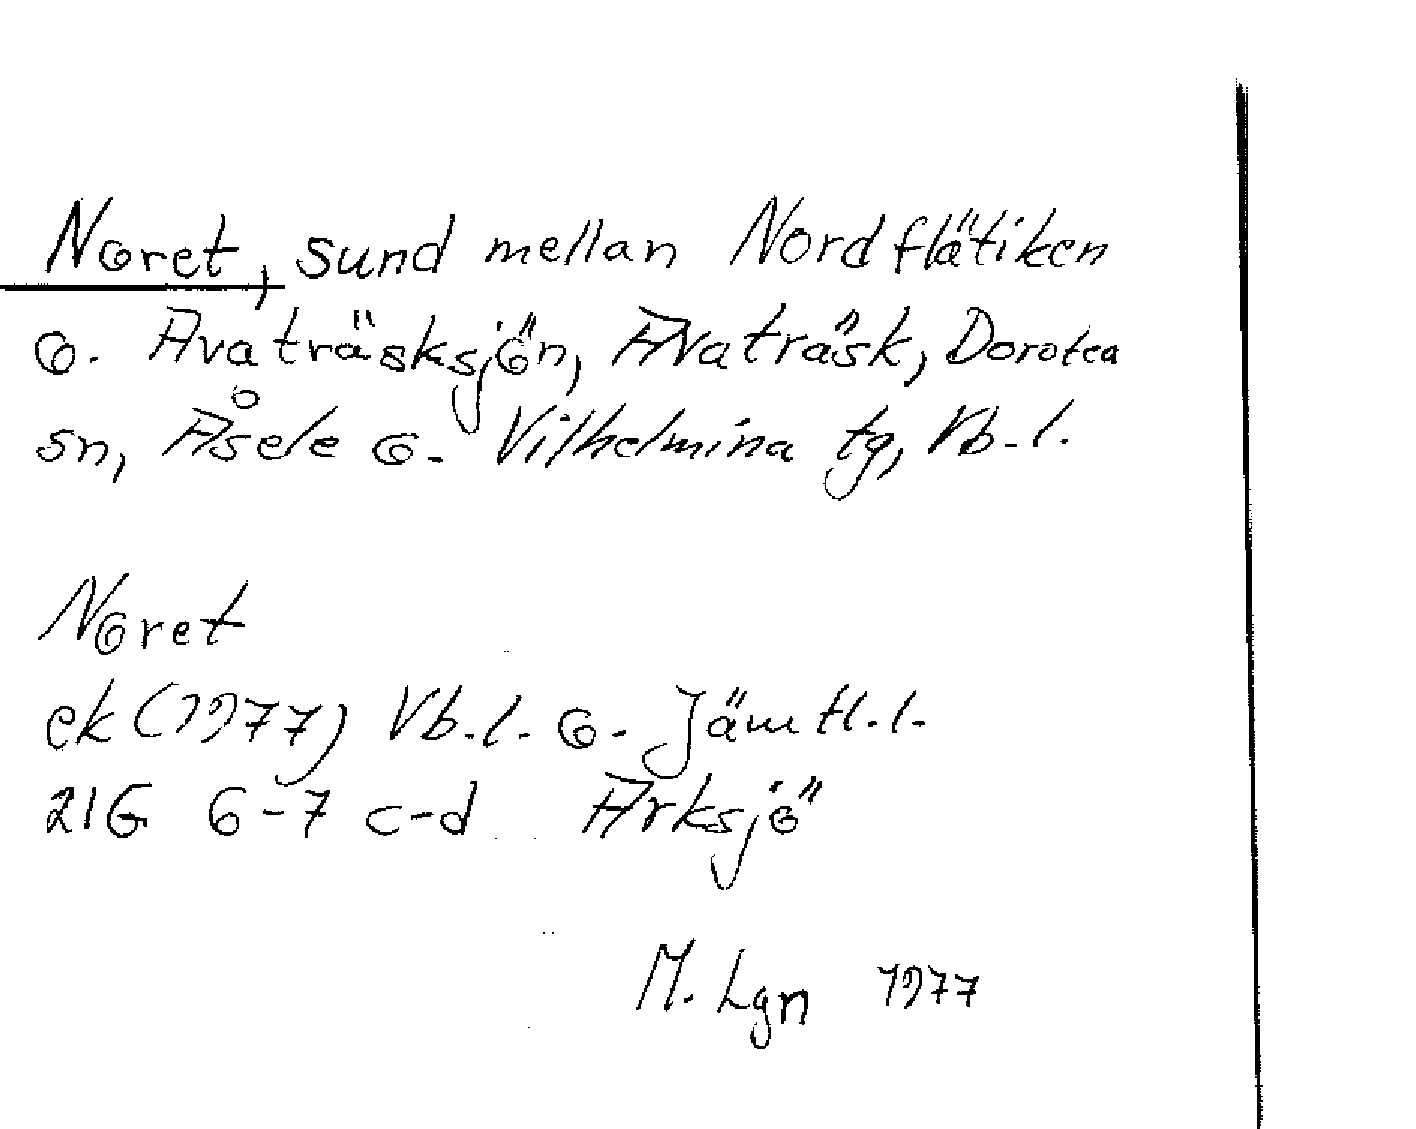 Noret, sund mellan Nordflätiken
o. Avaträsksjön, Avaträsk, Dorotea
sn, Åsele o. Vilhelmina tg, Vb.l.
Noret
ek (1977) Vb.l. o. Jämtl.l.
21G 6-7 c-d Arksjö
M. Lgn 1977